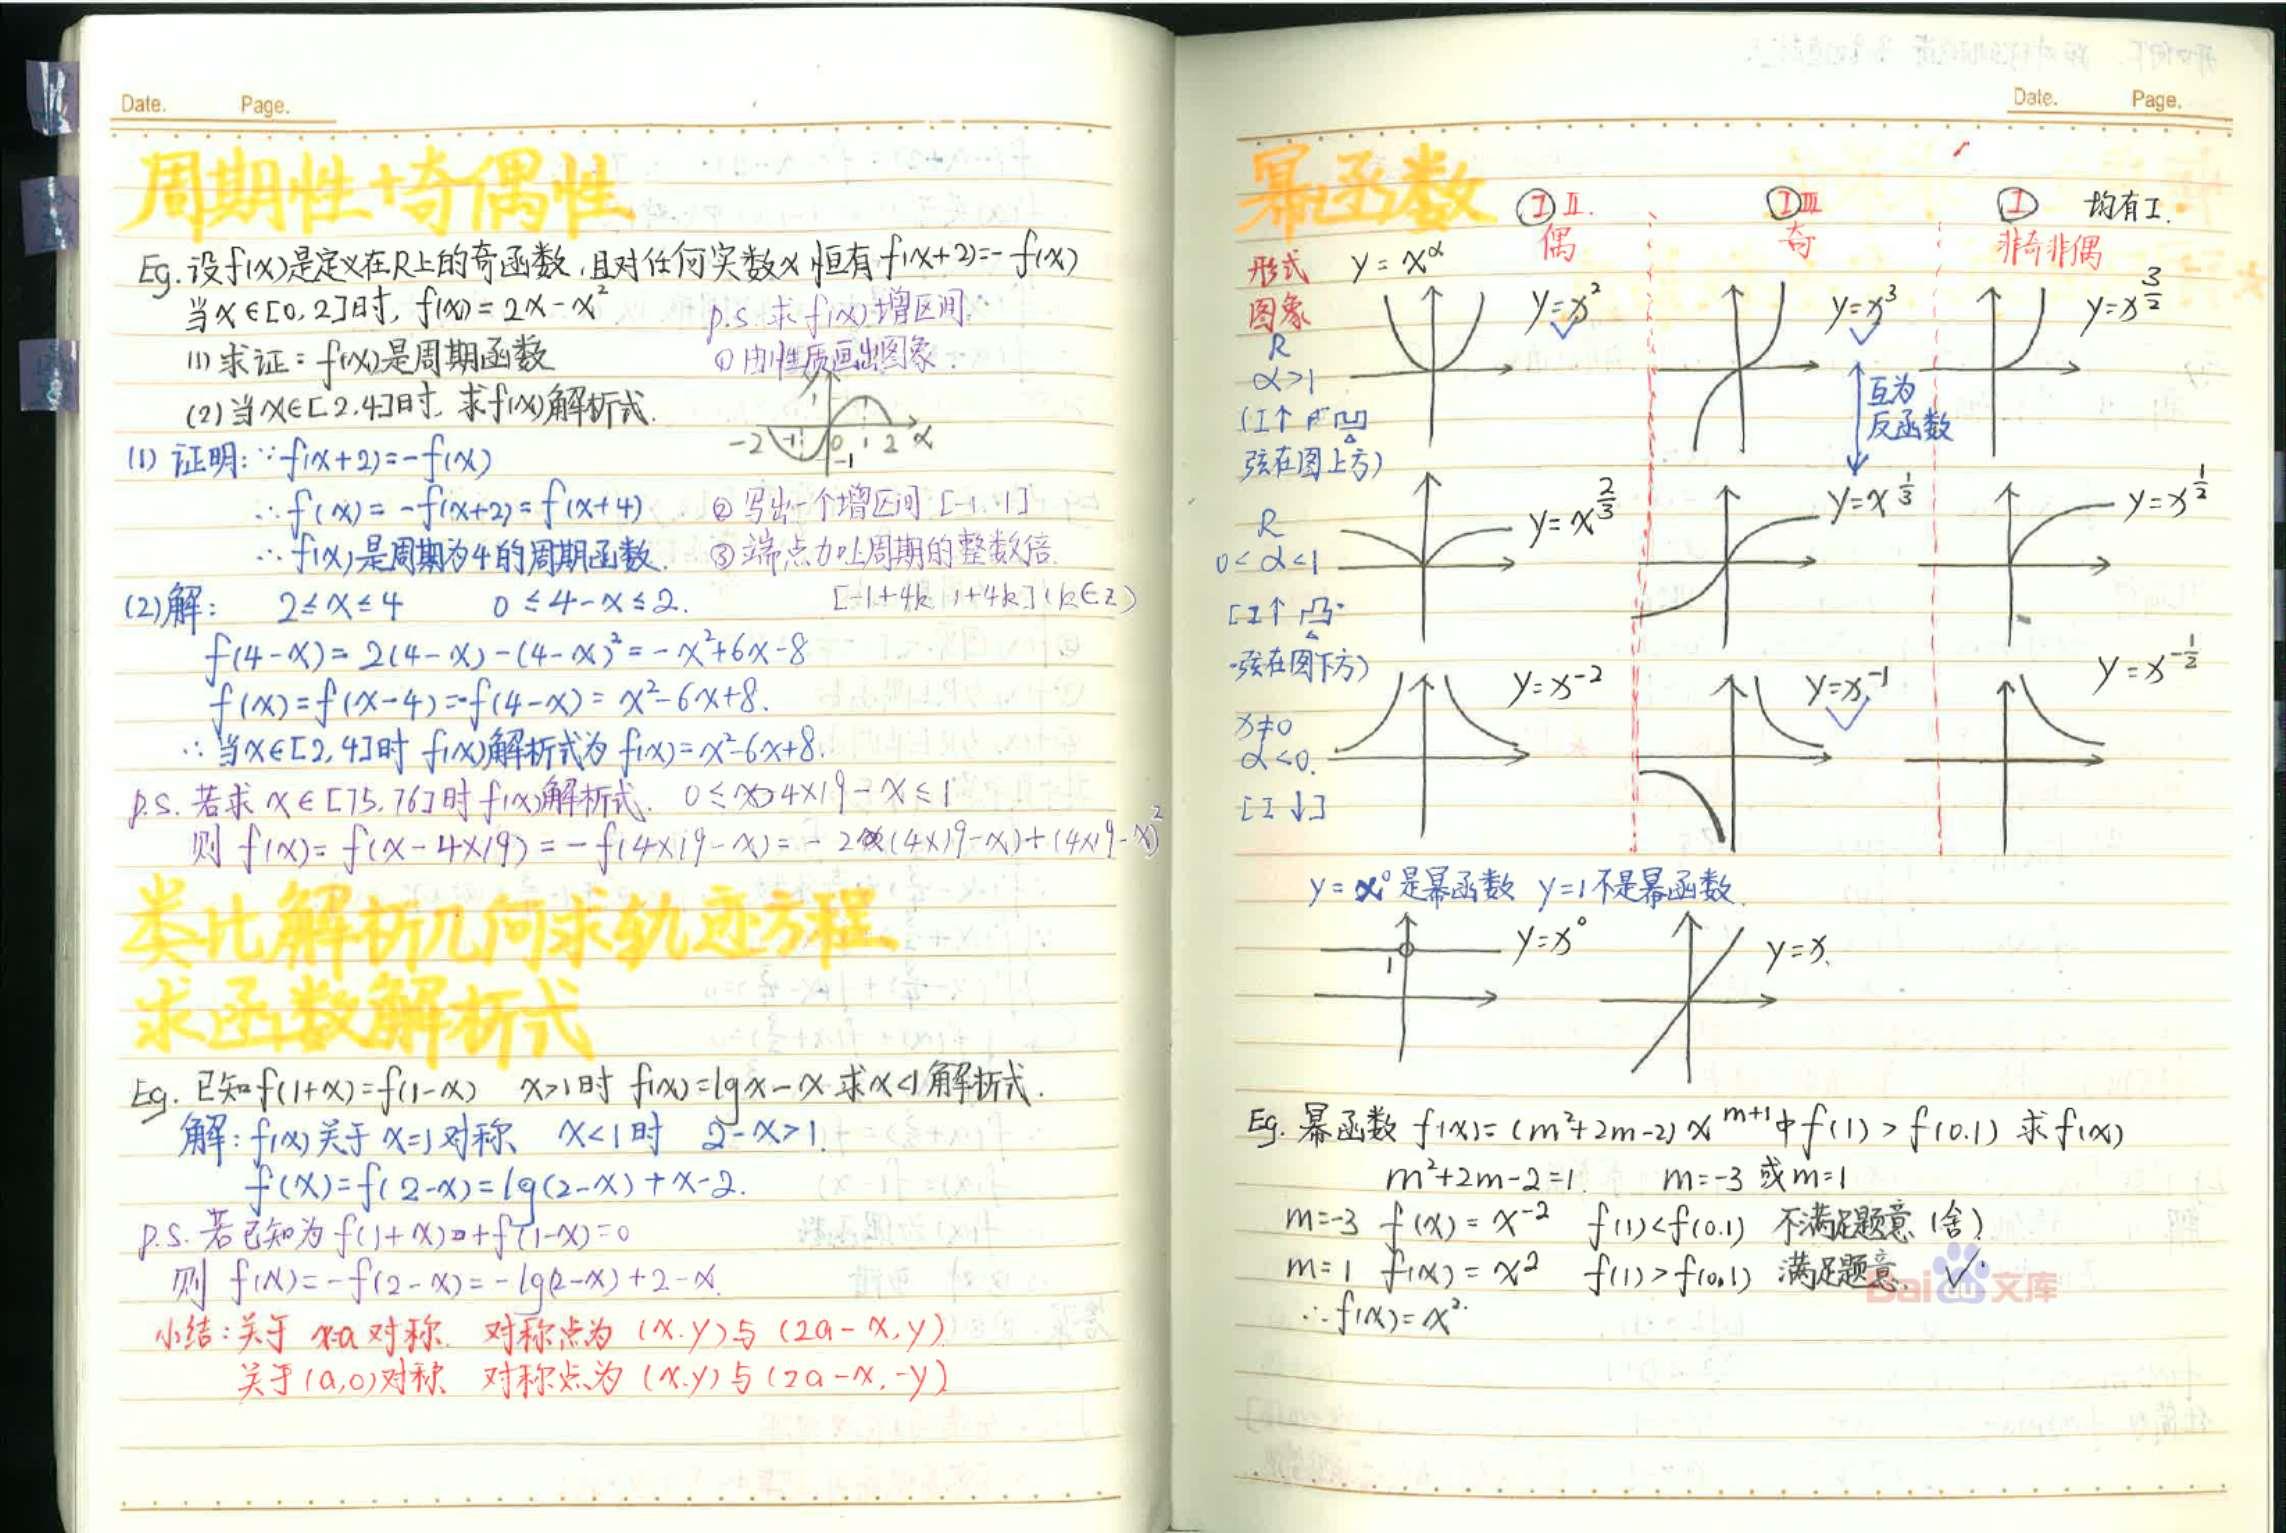 Date. Page.
周期性+奇偶性
Eg. 设f(x)是定义在R上的奇函数,且对任何实数x恒有f(x+2)=-f(x)
当x∈[0,2]时, f(x)=2x-x²
(1)求证:f(x)是周期函数
(2)当x∈[2,4]时, 求f(x)解析式.
p.s. 求f(x)增区间:
①由性质画出图象:
y
1
-2 -1 0 1 2 x
-1
②写出一个增区间[-1,1]
③端点加上周期的整数倍.
[-1+4k, 1+4k](k∈z)
(1)证明:∵f(x+2)=-f(x)
∴f(x)=-f(x+2)=f(x+4)
∴f(x)是周期为4的周期函数.
(2)解: 2≤x≤4 0≤4-x≤2.
f(4-x)=2(4-x)-(4-x)²=-x²+6x-8
f(x)=f(x-4)=-f(4-x)=x²-6x+8.
∴当x∈[2,4]时 f(x)解析式为f(x)=x²-6x+8.
p.s. 若求x∈[75,76]时f(x)解析式. 0≤4×19-x≤1
则f(x)=f(x-4×19)=-f(4×19-x)=-2(4×19-x)+(4×19-x)²
类比解析几何求轨迹方程
求函数解析式
Eg. 已知f(1+x)=f(1-x) x>1时 f(x)=lgx-x 求x<1解析式.
解:f(x)关于x=1对称 x<1时 2-x>1.
f(x)=f(2-x)=lg(2-x)+x-2.
p.s. 若已知为f(1+x)+f(1-x)=0
则 f(x)=-f(2-x)=-lg(2-x)+2-x.
小结:关于x=a对称. 对称点为(x.y)与(2a-x,y)
关于(a,0)对称 对称点为(x.y)与(2a-x,-y)
Date. Page.
幂函数
Ⅰ Ⅱ. Ⅰ Ⅲ Ⅰ 均有Ⅰ.
偶 奇 非奇非偶
形式 y=x^α
图象
R
α>1
(Ⅰ↑ 凹
弦在图上方)
y=x² y=x³ y=x^{3/2}
互为
反函数
R
0<α<1
[Ⅰ↑ 凸
弦在图下方)
y=x^{2/3} y=x^{1/3} y=x^{1/2}
x≠0
α<0.
[Ⅰ↓]
y=x^{-2} y=x^{-1} y=x^{-1/2}
y=x⁰是幂函数 y=1不是幂函数.
1
y=x⁰ y=x.
Eg. 幂函数f(x)=(m²+2m-2)x^{m+1}中f(1)>f(0.1) 求f(x)
m²+2m-2=1. m=-3 或m=1
m=-3 f(x)=x^{-2} f(1)<f(0.1) 不满足题意(舍)
m=1 f(x)=x² f(1)>f(0.1) 满足题意.
∴f(x)=x².
Bai 文库